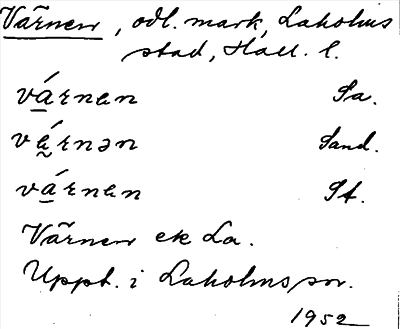 Värnen, odl. mark, Laholms
stad, Hall. l.
vá̱rnɐn Sa.
vḛ́rnən Sand.
vá̱rnɐn St.
Värnen ek La.
Uppt. i Laholms sn.
1952